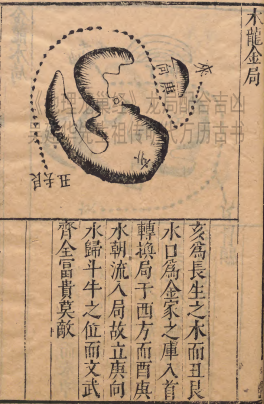 木龍金局
向
丑
艮
龙局配合吉凶
祖传
万历古书
亥爲長生之木而丑艮
水口爲金家之庫入首
轉換局于西方而酉庚
水朝流入局故立庚向
水歸斗牛之位而文武
齊全富貴莫敵